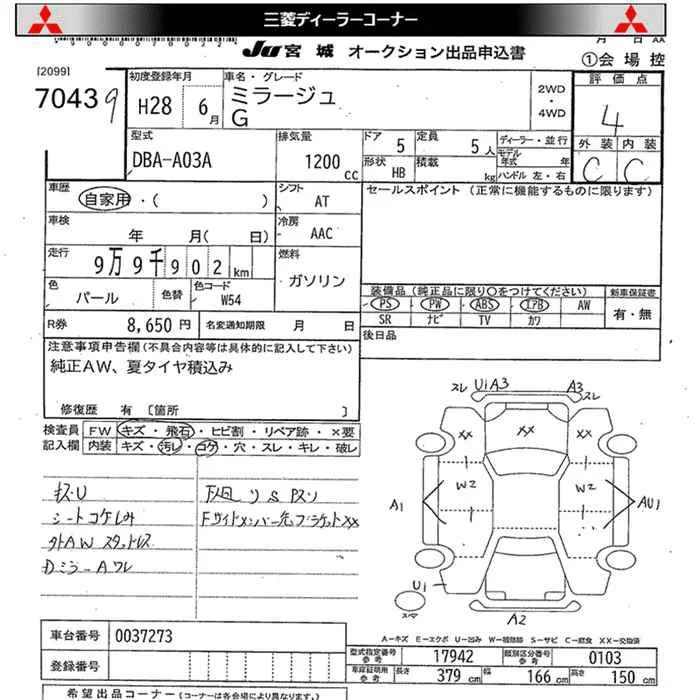 三菱ディーラーコーナー
JU 宮城 オークション出品申込書
①会場控
[2099]
70439
初度登録年月
H28 6月
車名・グレード
ミラージュ
G
2WD
・
4WD
評価点
4
外装 内装
C C
型式
DBA-A03A
排気量
1200 cc
ドア 5
定員 5人
形状 HB
積載 kg
ディーラー・並行
モデル年式 年
ハンドル 左・右
車歴
自家用・( )
シフト
AT
セールスポイント (正常に機能するものに限ります)
車検
年 月( 日)
冷房
AAC
走行
9万9千902km
燃料
ガソリン
色
パール
色替
色コード
W54
装備品(純正品に限り○をつけてください)
PS PW ABS エアB AW
SR ナビ TV カワ
新車保証書
有・無
R券 8,650円
名変通知期限 月 日
後日品
注意事項申告欄(不具合内容等は具体的に記入して下さい)
純正AW、夏タイヤ積込み
修復歴 有 [箇所 ]
検査員
記入欄
FW キズ・飛石・ヒビ割・リペア跡・×要
内装 キズ・汚レ・コゲ・穴・スレ・キレ・破レ
キズU
シートコゲしみ
外AWスタッドレス
Dミラーワレ
下廻りSキズ
Fサイドメンバー先ブラケットXX
スレ U1A3 A3 スレ
XX XX XX
W2 W2
A1 AU1
U1
A2
A-キズ E-エクボ U-凹み W-補修跡 S-サビ C-腐食 XX-交換済
車台番号 0037273
登録番号
型式指定番号
参考
17942
類別区分番号
参考
0103
車庫証明用
参考
長さ 379 cm
幅 166 cm
高さ 150 cm
希望出品コーナー(コーナーは各会場により異なります。)